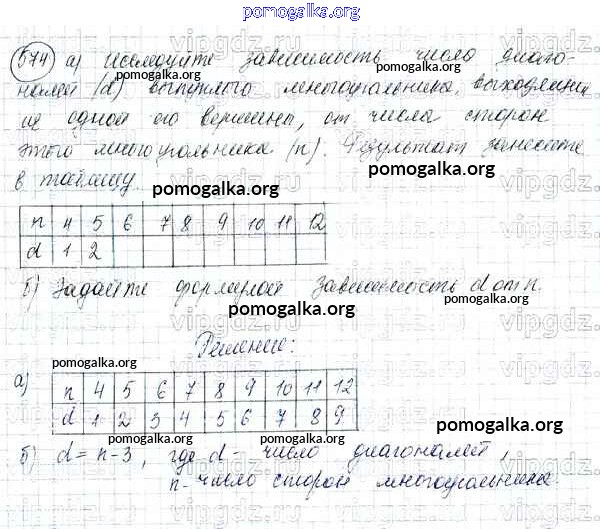 pomogalka.org
574 а) Исследуйте зависимость число диаго-
налей (d) выпуклого многоугольника, выходящих
из одной его вершины, от числа сторон
этого многоугольника (n). Результат занесите
в таблицу.
pomogalka.org
n 4 5 6 7 8 9 10 11 12
d 1 2
б) Задайте формулой зависимость d от n.
pomogalka.org
Решение:
pomogalka.org
а) n 4 5 6 7 8 9 10 11 12
d 1 2 3 4 5 6 7 8 9
pomogalka.org
б) d = n - 3, где d - число диагоналей,
n - число сторон многоугольника.
pomogalka.org
vipgdz.ru